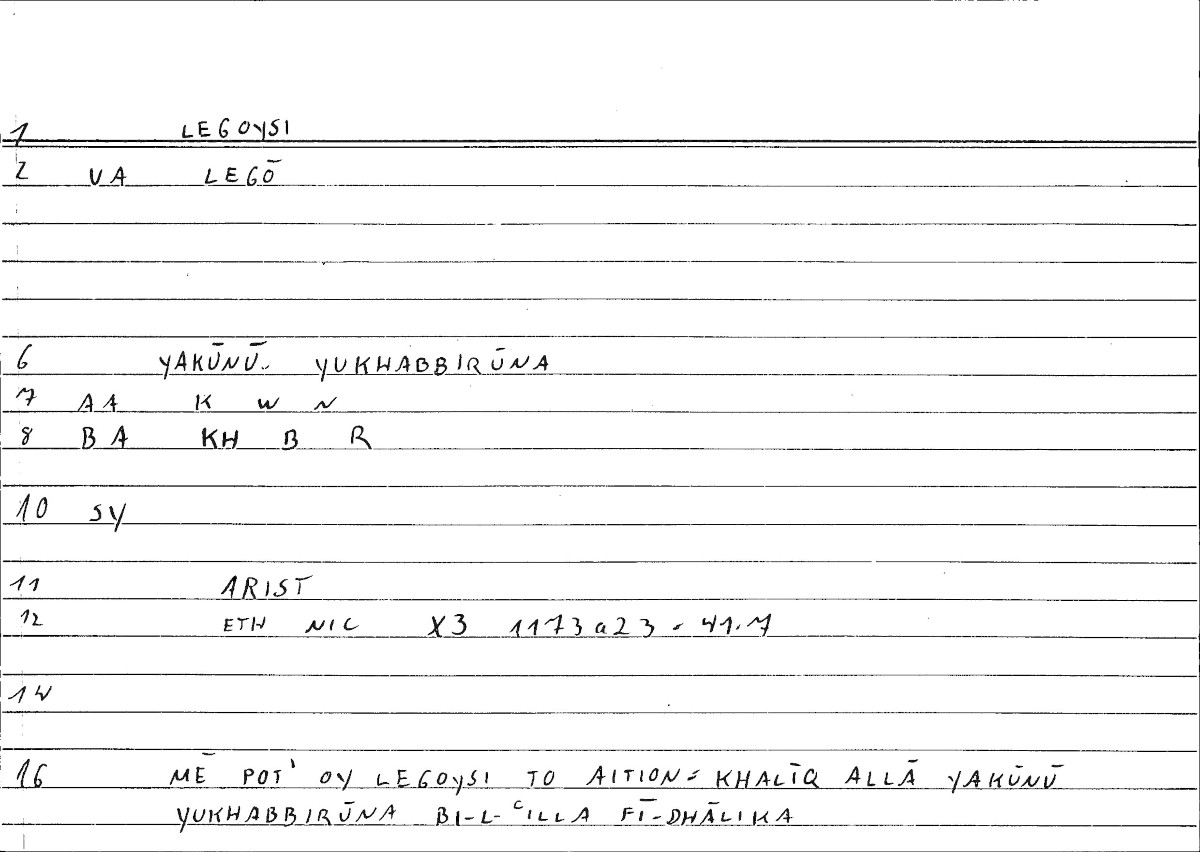 1 LEGOYSI
2 VA LEGŌ
6 YAKŪNŪ.. YUKHABBIRŪNA
7 AA K W N
8 BA KH B R
10 SY
11 ARIST
12 ETH NIC X3 1173a23 = 41.7
14
16 MĒ POT' OY LEGOYSI TO AITION = KHALĪQ ALLĀ YAKŪNŪ
YUKHABBIRŪNA BI-L-ʿILLA FĪ-DHĀLIKA